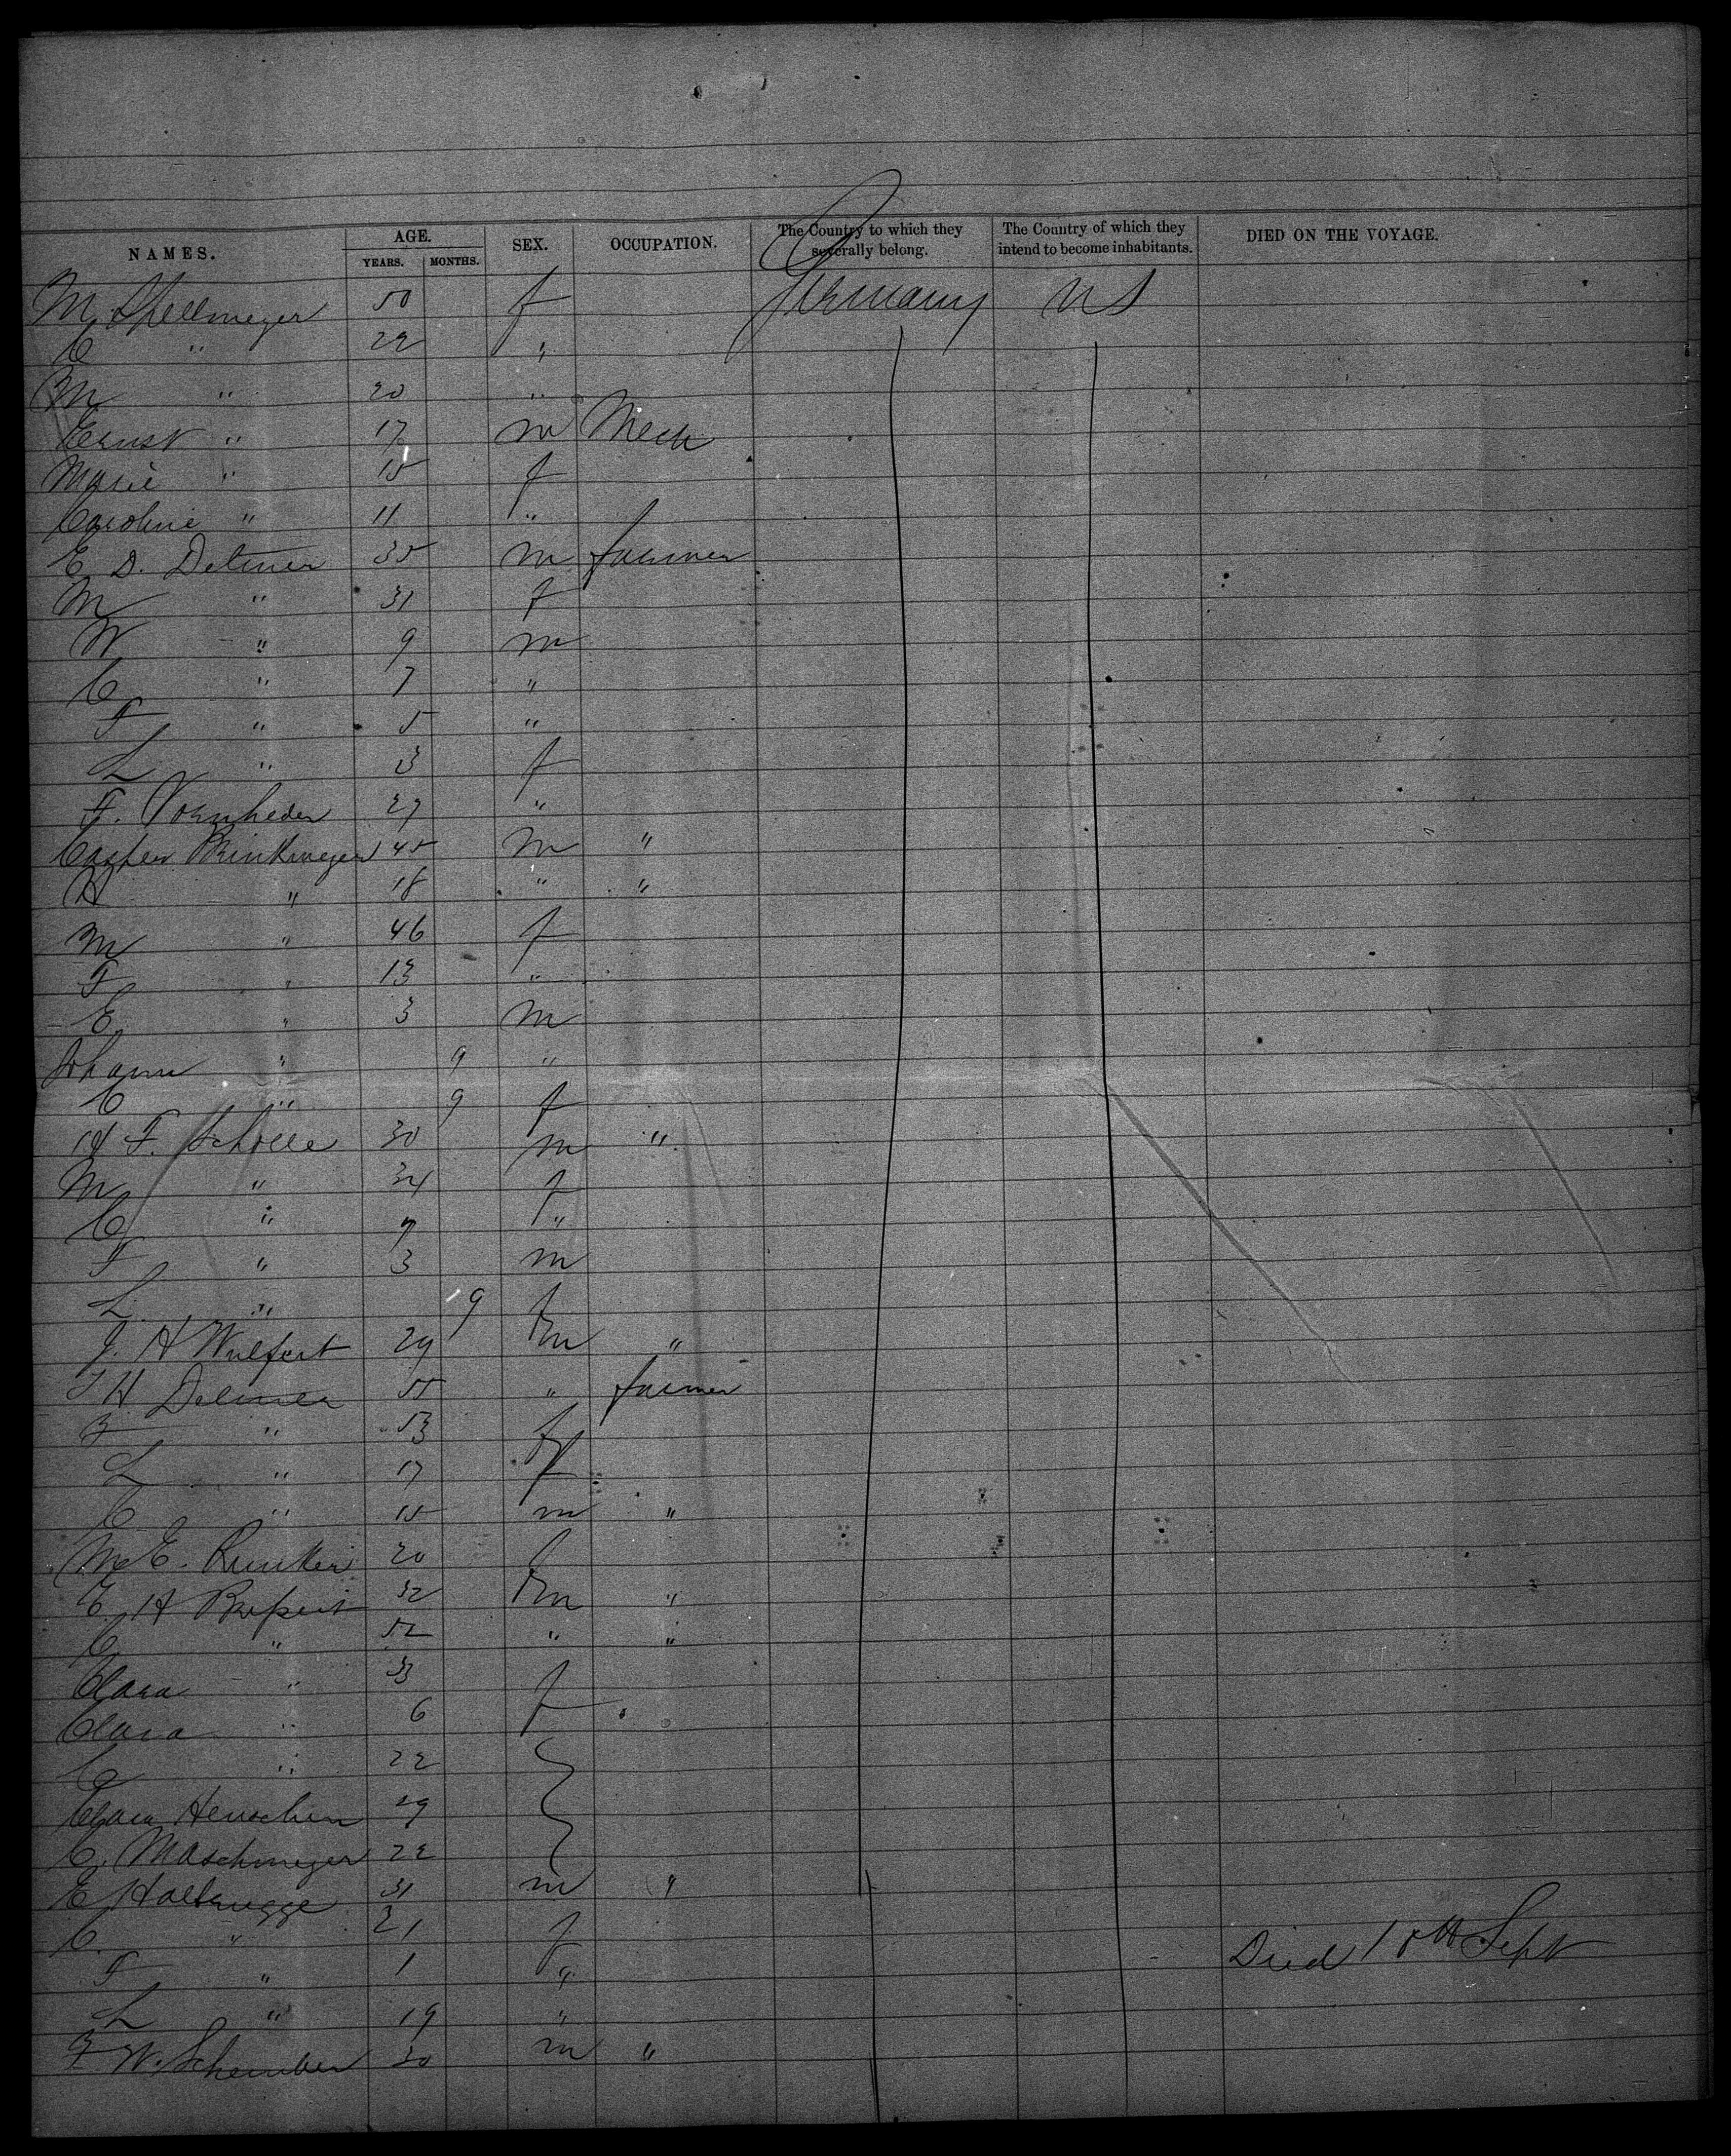 NAMES. AGE. YEARS. MONTHS. SEX. OCCUPATION. The Country to which they severally belong. The Country of which they intend to become inhabitants. DIED ON THE VOYAGE.
M Spellmeyer 50 f Germany US
C " 22 "
M " 20 "
Ernst " 17 m Mech
Marie " 15 f
Caroline " 11 "
E D. Detmer 35 m farmer
M " 31 f
W " 9 m
C " 7 "
F " 5 "
L " 3 f
F. Vornheder 27 "
Casper Brinkmeyer 45 m "
H " 18 " "
M " 46 f
F " 13 "
E " 3 m
Johann " 9 "
C " 9 f
H F. Scholle 30 m "
M " 34 f
C " 7 "
F " 3 m
L " 9 f
J. H Wulfert 29 m "
H Detmer 55 " farmer
F " 53 f
L " 17 f
C " 15 m "
M E. Runker 20 f
E. H 32 m "
C " 52 " "
Clara " 33 f
Clara " 6 f
C " 22
Clara 29
C. Maschmeyer 22
E Holtbrugge 31 m "
C. " 21 f
F " 1 " Died 10th Sept
L " 19 "
F W. 30 m "